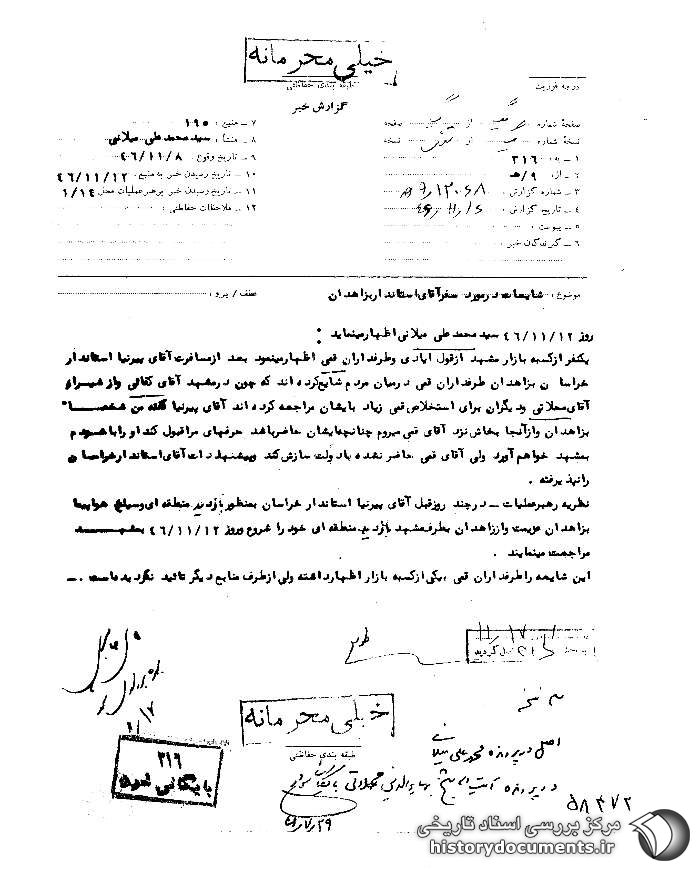 خیلی محرمانه
طبقه بندی حفاظتی
گزارش خبر
درجه فوریت
صفحهٔ شماره از صفحه
نسخهٔ شماره از نسخه
۱ – به : ۳۱۶
۲ – از : ۹/ه‍
۳ – شماره گزارش :
۴ – تاریخ گزارش :
۵ – پیوست :
۶ – گیرندگان خبر :
۷ – منبع : ۱۹۰
۸ – منشأ : سید محمد علی میلانی
۹ – تاریخ وقوع : ۴۶/۱۱/۸
۱۰ – تاریخ رسیدن خبر به منبع : ۴۶/۱۱/۱۲
۱۱ – تاریخ رسیدن خبر برهبر عملیات محل ۱/۱۴
۱۲ – ملاحظات حفاظتی :
موضوع : شایعات در مورد سفر آقای استاندار بزاهدان عطف / پیرو :
روز ۴۶/۱۱/۱۲ سید محمد علی میلانی اظهار مینماید :
یکنفر از کسبه بازار مشهد از قول ایادی و طرفداران قمی اظهار مینمود بعد از مسافرت آقای پیرنیا استاندار
خراسان بزاهدان طرفداران قمی در میان مردم شایع کرده اند که چون در مشهد آقای کفائی و از شیراز
آقای محلاتی و دیگران برای استخلاص قمی زیاد بایشان مراجعه کرده اند آقای پیرنیا گفته من شخصا"
بزاهدان و از آنجا بخاش نزد آقای قمی میروم چنانچه ایشان حاضر باشد حرفهای مرا قبول کند او را با خودم
بمشهد خواهم آورد ولی آقای قمی حاضر نشده با دولت سازش کند و پیشنهادات آقای استاندار خراسان
را نپذیرفته .
نظریه رهبر عملیات – در چند روز قبل آقای پیرنیا استاندار خراسان بمنظور بازدید منطقه ای وسیله هواپیما
بزاهدان عزیمت و از زاهدان بطرف مشهد بازدید منطقه ای خود را شروع و روز ۴۶/۱۱/۱۲ بمشهد
مراجعت مینمایند .
این شایعه را طرفداران قمی ، یکی از کسبه بازار اظهار داشته ولی از طرف منابع دیگر تائید نگردیده است . –
خیلی محرمانه
طبقه بندی حفاظتی
۳۱۶
بایگانی شود
اصل در پرونده محمد علی میلانی
در پرونده آیت اله شیخ بهاءالدین محلاتی بایگانی شود
۵۸۴۷۲
مرکز بررسی اسناد تاریخی
historydocuments.ir